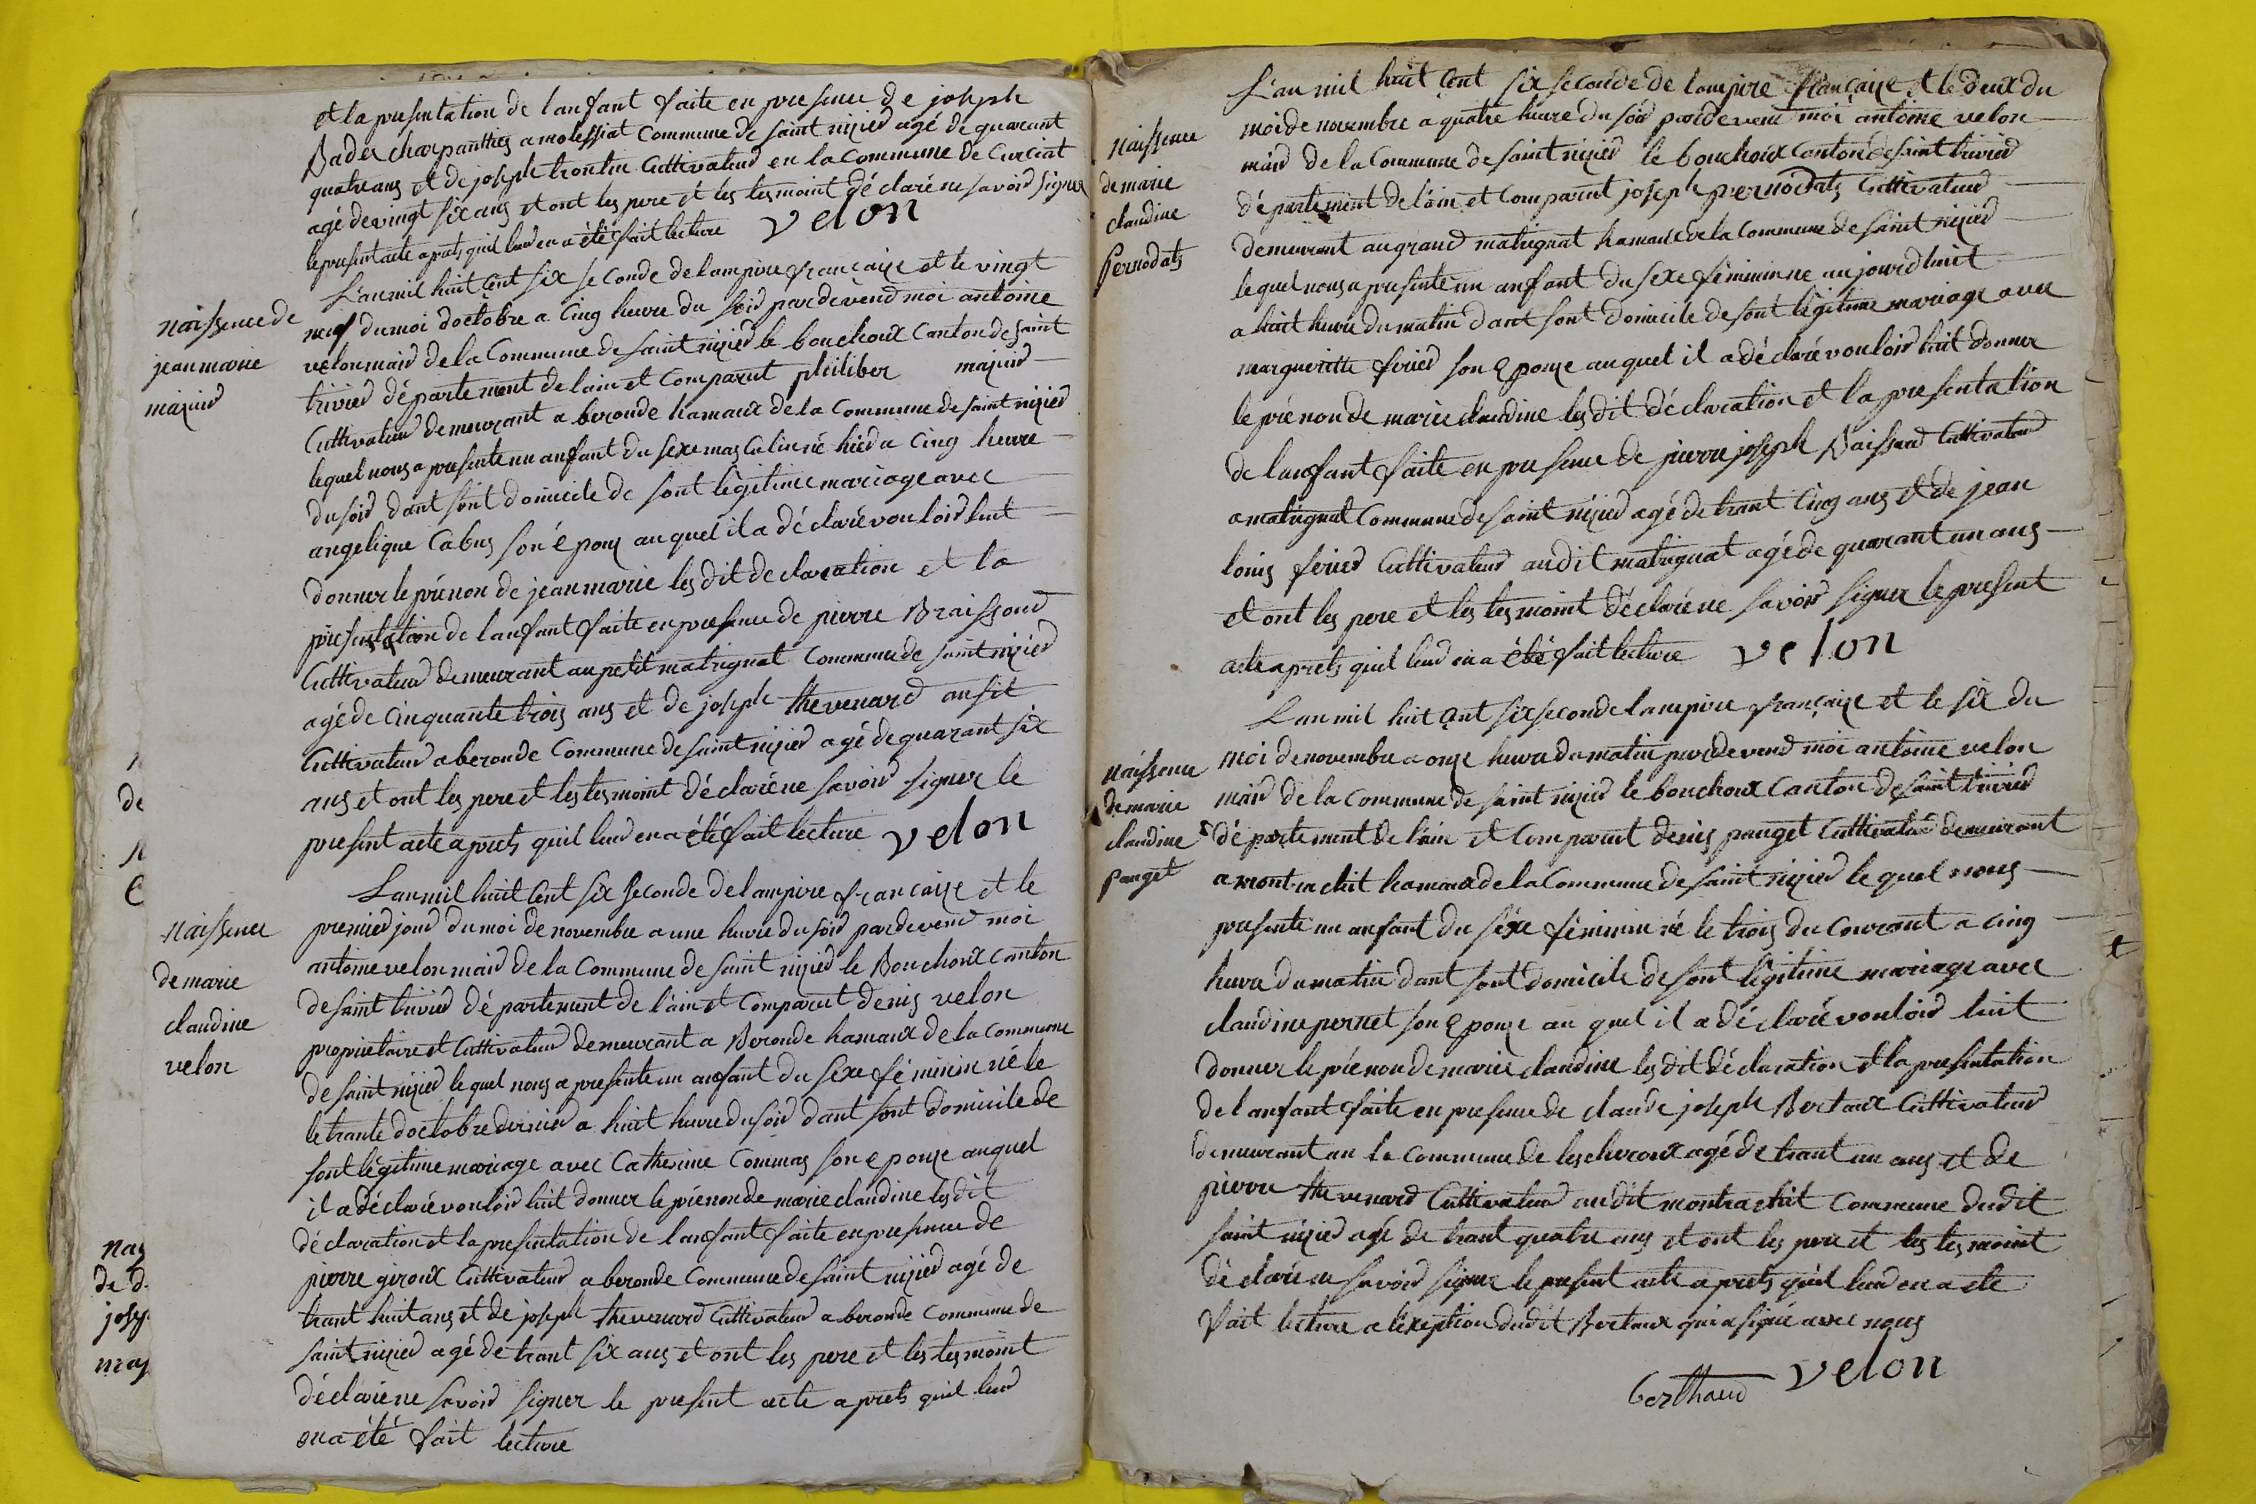 et la presentation de lanfant faite en presence de joseph
Badez charpanthies a molissiat Commune de saint nizied agé de quarant
quatre ans et de joseph trontin Cultivateud en la Commune de Curciat
agé de vingt six ans et ont les pere et les tesmoint déclaré ne savoid signer
le present acte aprets quil leud en a été fait lecture velon
naissence de
jean marie
mazuid
L'an mil huit Cent six seconde de lampire française et le vingt
neuf du moi doctobre a Cinq heure du soid pardevend moi antoine
velon maid de la Commune de saint nizied le bouchoux Canton de saint
trivied département de lain et Comparut philiber mazuid
Cultivateud demeurant a beronde hamaux de la Commune de saint nizied
lequel nous a presente un anfant du sexe masculin né hied a Cinq heure
du soid dant sont domicile de sont légitime mariage avec
angelique Cabus son épouz auquel il a déclaré vouloid luit
donner le prénon de jean marie les dit declaration et la
presentation de lanfant faite en presence de pierre Braissoud
Cultivateud demeurant au petit matrignat Commune de saint nizied
agé de Cinquante trois ans et de joseph thevenard ausit
Cultivateud a beronde Commune de saint nizied agé de quarant six
ans et ont les pere et les tesmoint déclaré ne savoid signer le
present acte aprets quil leud en a été fait lecture velon
naissence
de marie
claudine
velon
L'an mil huit Cent six seconde de lampire française et le
premied joud du moi de novembre a une heure du soid pardevend moi
antoine velon maid de la Commune de saint nizied le Bouchoux Canton
de saint trivied département de lain et Comparut denis velon
proprietaire et Cultivateud demeurant a Beronde hamaux de la Commune
de saint nizied lequel nous a presente un anfant du sexe féminin né le
le trante doctobre dernied a huit heure du soid dant sont domicile de
sont légitime mariage avec Catherine Commas son epouze auquel
il a déclaré vouloid luit donner le prénon de marie claudine les dit
déclaration et la presentation de lanfant faite en presence de
pierre giroux Cultivateud a beronde Commune de saint nizied agé de
trant huit ans et de joseph thevenard Cultivateud a beronde Commune de
saint nizied agé de trant six ans et ont les pere et les tesmoint
déclaré ne savoid signer le present acte aprets quil leud
en a été fait lecture
naissence
de marie
claudine
Pernodats
L'an mil huit Cent six seconde de lampire française et le deux du
moi de novembre a quatre heure du soid pardevend moi antoine velon
maid de la Commune de saint nizied le bouchoux Canton de saint trivied
département de l'ain et Comparut joseph pernodats Cultivateud
demeurant au grand matrignat hamaux de la Commune de saint nizied
lequel nous a presente un anfant du sexe féminin ne aujourdhuit
a huit heure du matin dant sont domicile de sont légitime mariage avec
margueritte feried son epouze auquel il a déclaré vouloid luit donner
le prénon de marie claudine les dit déclaration et la presentation
de lanfant faite en presence de pierre joseph Baissard Cultivateud
a matrignat Commune de saint nizied agé de trant Cinq ans et de jean
louis feried Cultivateud audit matrignat agé de quarant un ans
et ont les pere et les tesmoint déclaré ne savoid signer le present
acte aprets quil leud en a été fait lecture velon
naissence
de marie
claudine
pauget
L'an mil huit Cent six seconde lampire française et le six du
moi de novembre a onze heure du matin pardevend moi antoine velon
maid de la Commune de saint nizied le bouchoux Canton de saint trivied
département de l'ain et Comparut denis pauget Cultivateud demeurant
a montrachit hamaux de la Commune de saint nizied lequel nous
presente un anfant du séxe féminin né le trois du Courant a cinq
heure du matin dant sont domicile de sont légitime mariage avec
claudine perret son epouze au quel il a déclaré vouloid luit
donner le prénon de marie claudine les dit déclaration et la presentation
de lanfant faite en presence de claude joseph Bertaux Cultivateud
demeurant an la Commune de lescheroux agé de trant un ans et de
pierre thevenard Cultivateud audit montrachit Commune dudit
saint nizied agé de trant quatre ans et ont les pere et les tesmoint
déclaré ne savoid signer le present acte aprets quil leud en a ete
fait lecture a lexeption dudit Bertaux qui a signé avec nous
berthaud velon